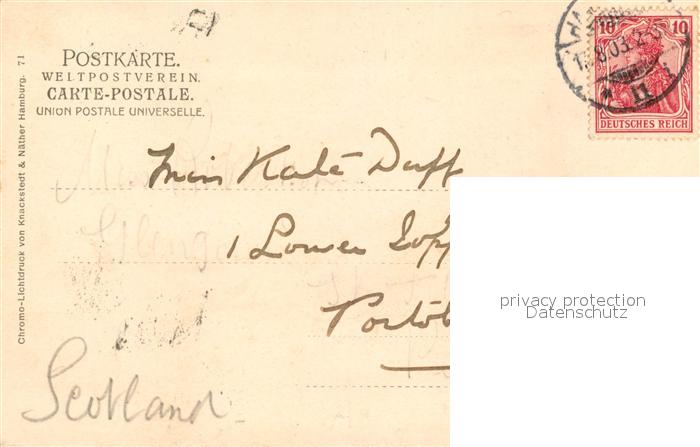 POSTKARTE.
WELTPOSTVEREIN.
CARTE-POSTALE.
UNION POSTALE UNIVERSELLE.
Chromo-Lichtdruck von Knackstedt & Näther Hamburg. 71
10 10
DEUTSCHES REICH
Miss Kate Duff
1 Lower
Scotland
privacy protection
Datenschutz